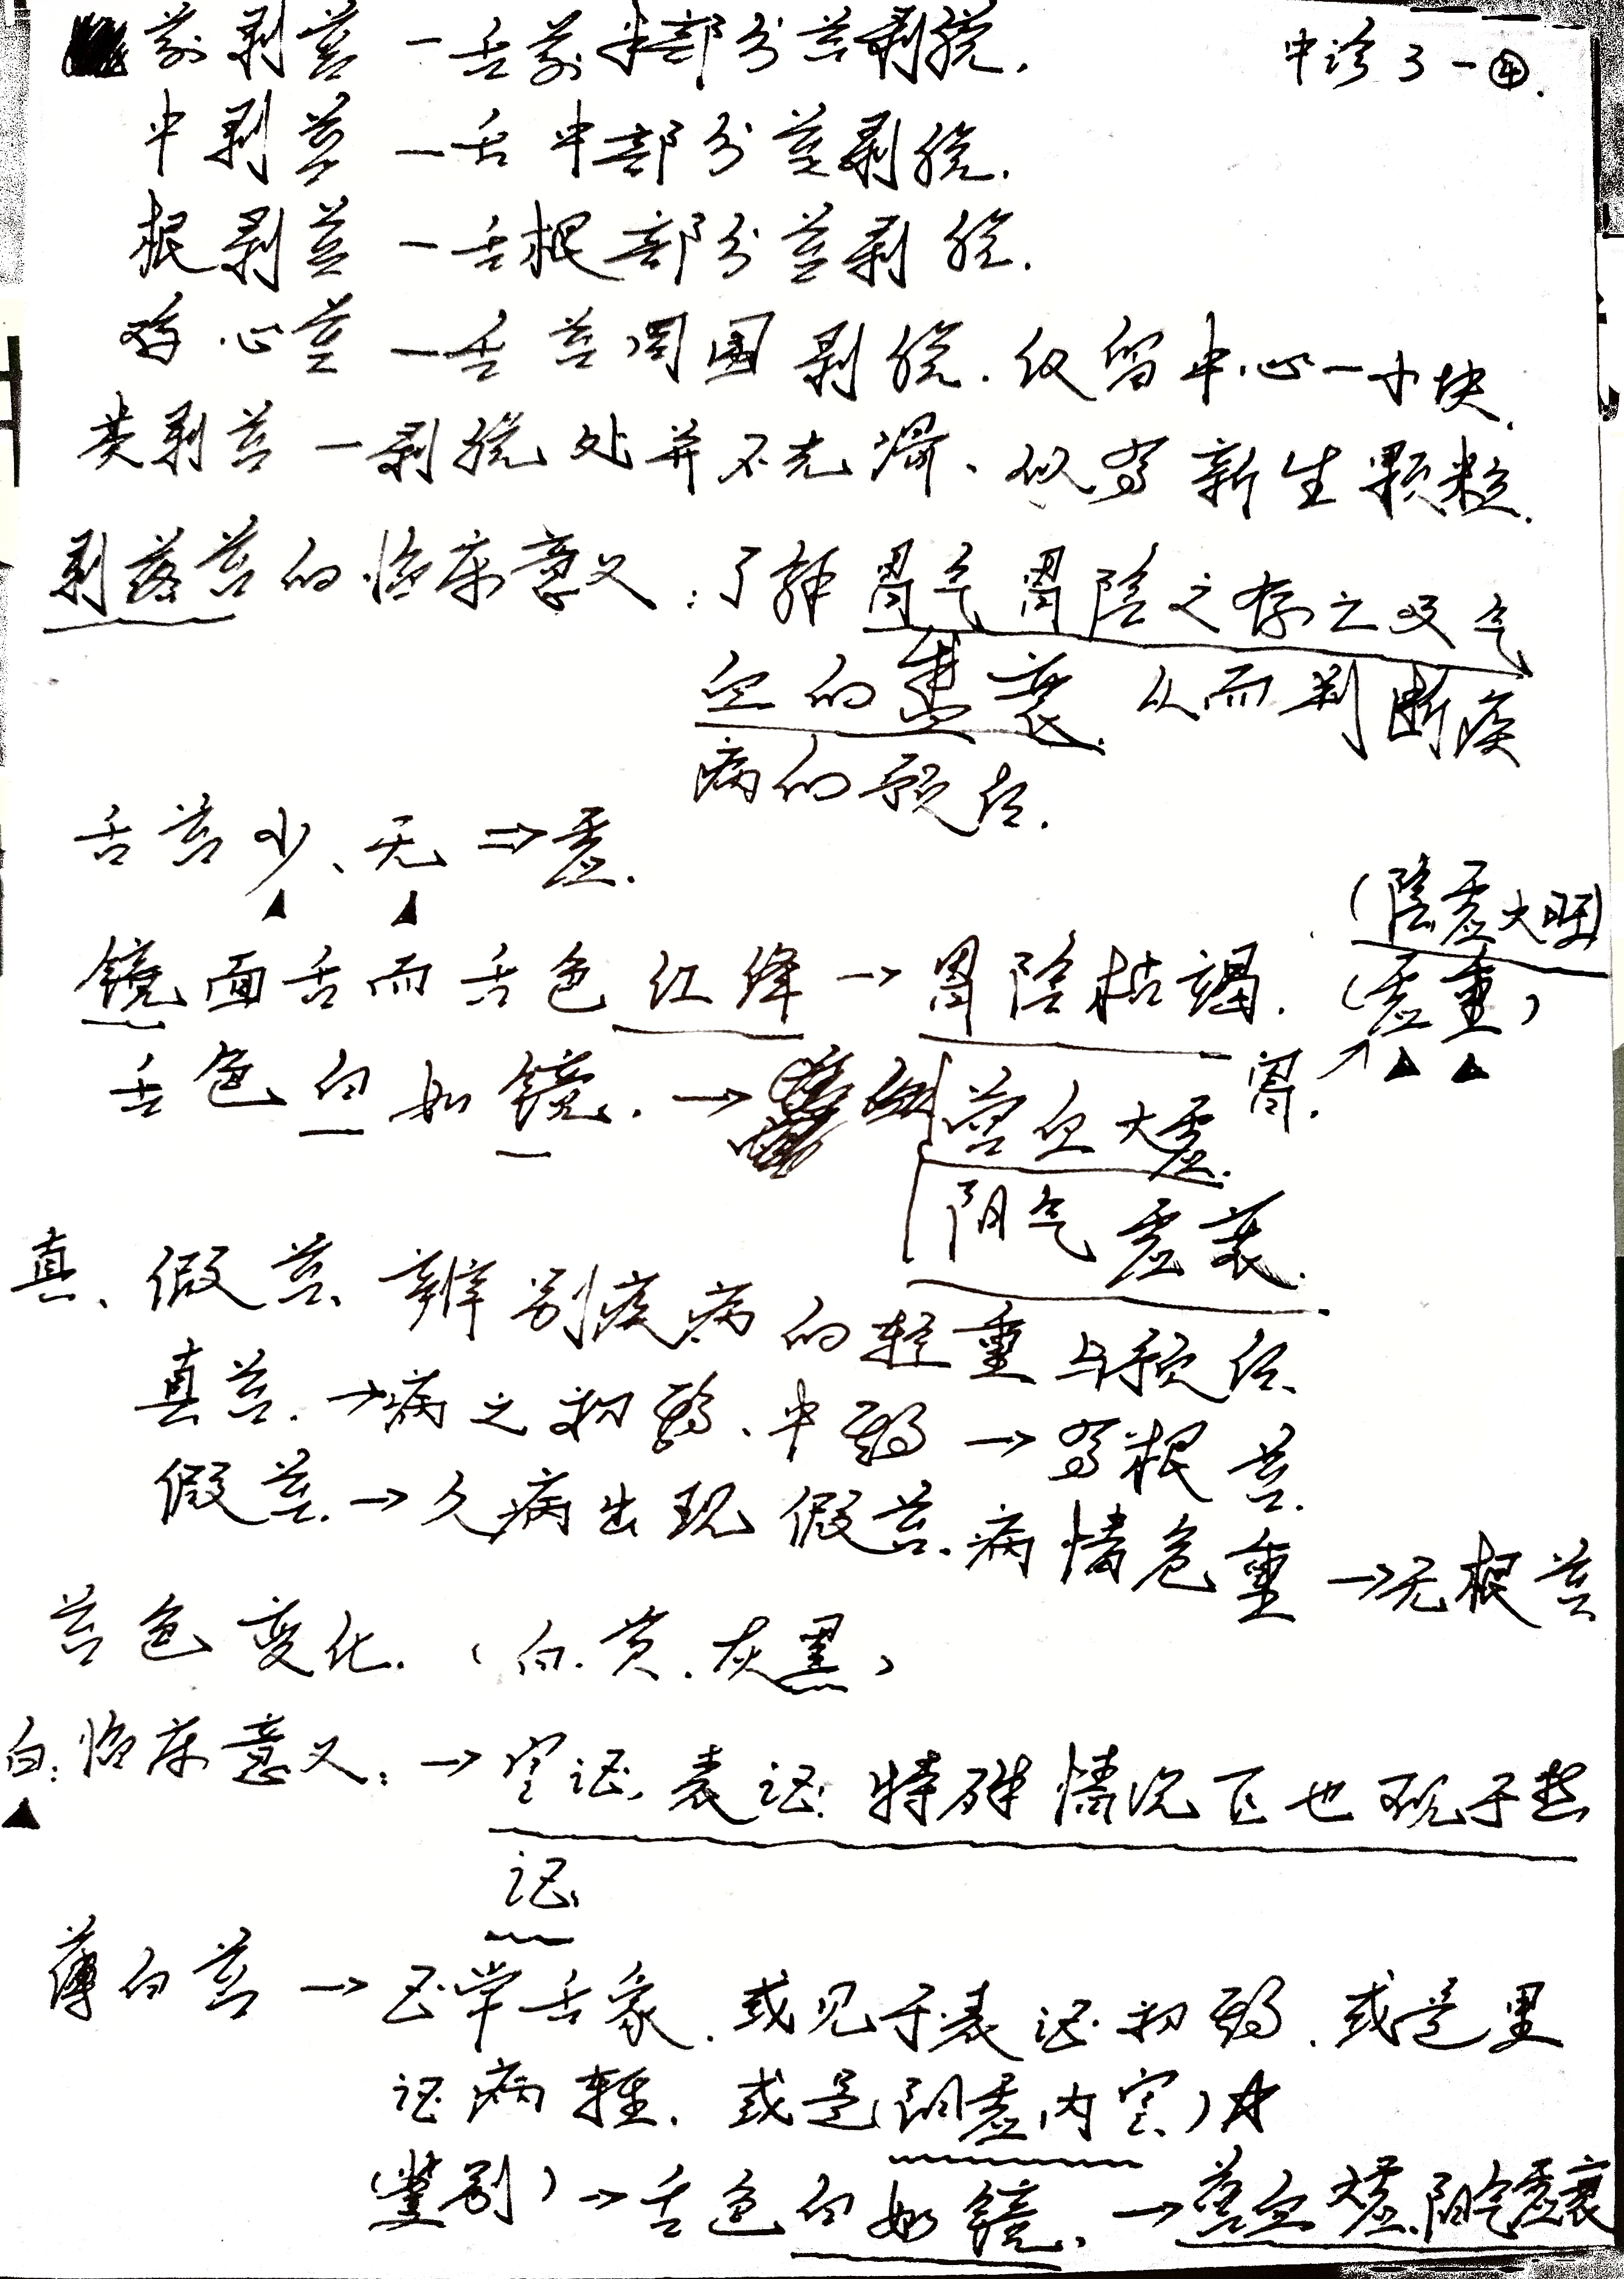 中诊3-④.
前剥苔-舌前半部分苔剥脱.
中剥苔-舌中部分苔剥脱.
根剥苔-舌根部分苔剥脱.
鸡心苔-舌苔周围剥脱.仅留中心一小块.
类剥苔-剥脱处并不光滑、似有新生颗粒.
剥落苔的临床意义:了解胃气胃阴之存亡及气
血的盛衰.从而判断疾
病的预后.
舌苔少、无⇒虚.
(阴虚火旺)
镜面舌而舌色红绛→胃阴枯竭.(虚重)
胃.
舌色白如镜.→营血大虚.
阳气虚衰.
真、假苔、辨别疾病的轻重与预后、
真苔.→病之初期、中期→有根苔.
假苔.→久病出现假苔.病情危重→无根苔
苔色变化.(白.黄.灰黑)
白:临床意义:→寒证,表证.特殊情况下也现于热
证.
薄白苔→正常舌象.或见于表证初期.或是里
证病轻.或是阳虚内寒)
(鉴别)→舌色白如镜.→营血大虚.阳气虚衰